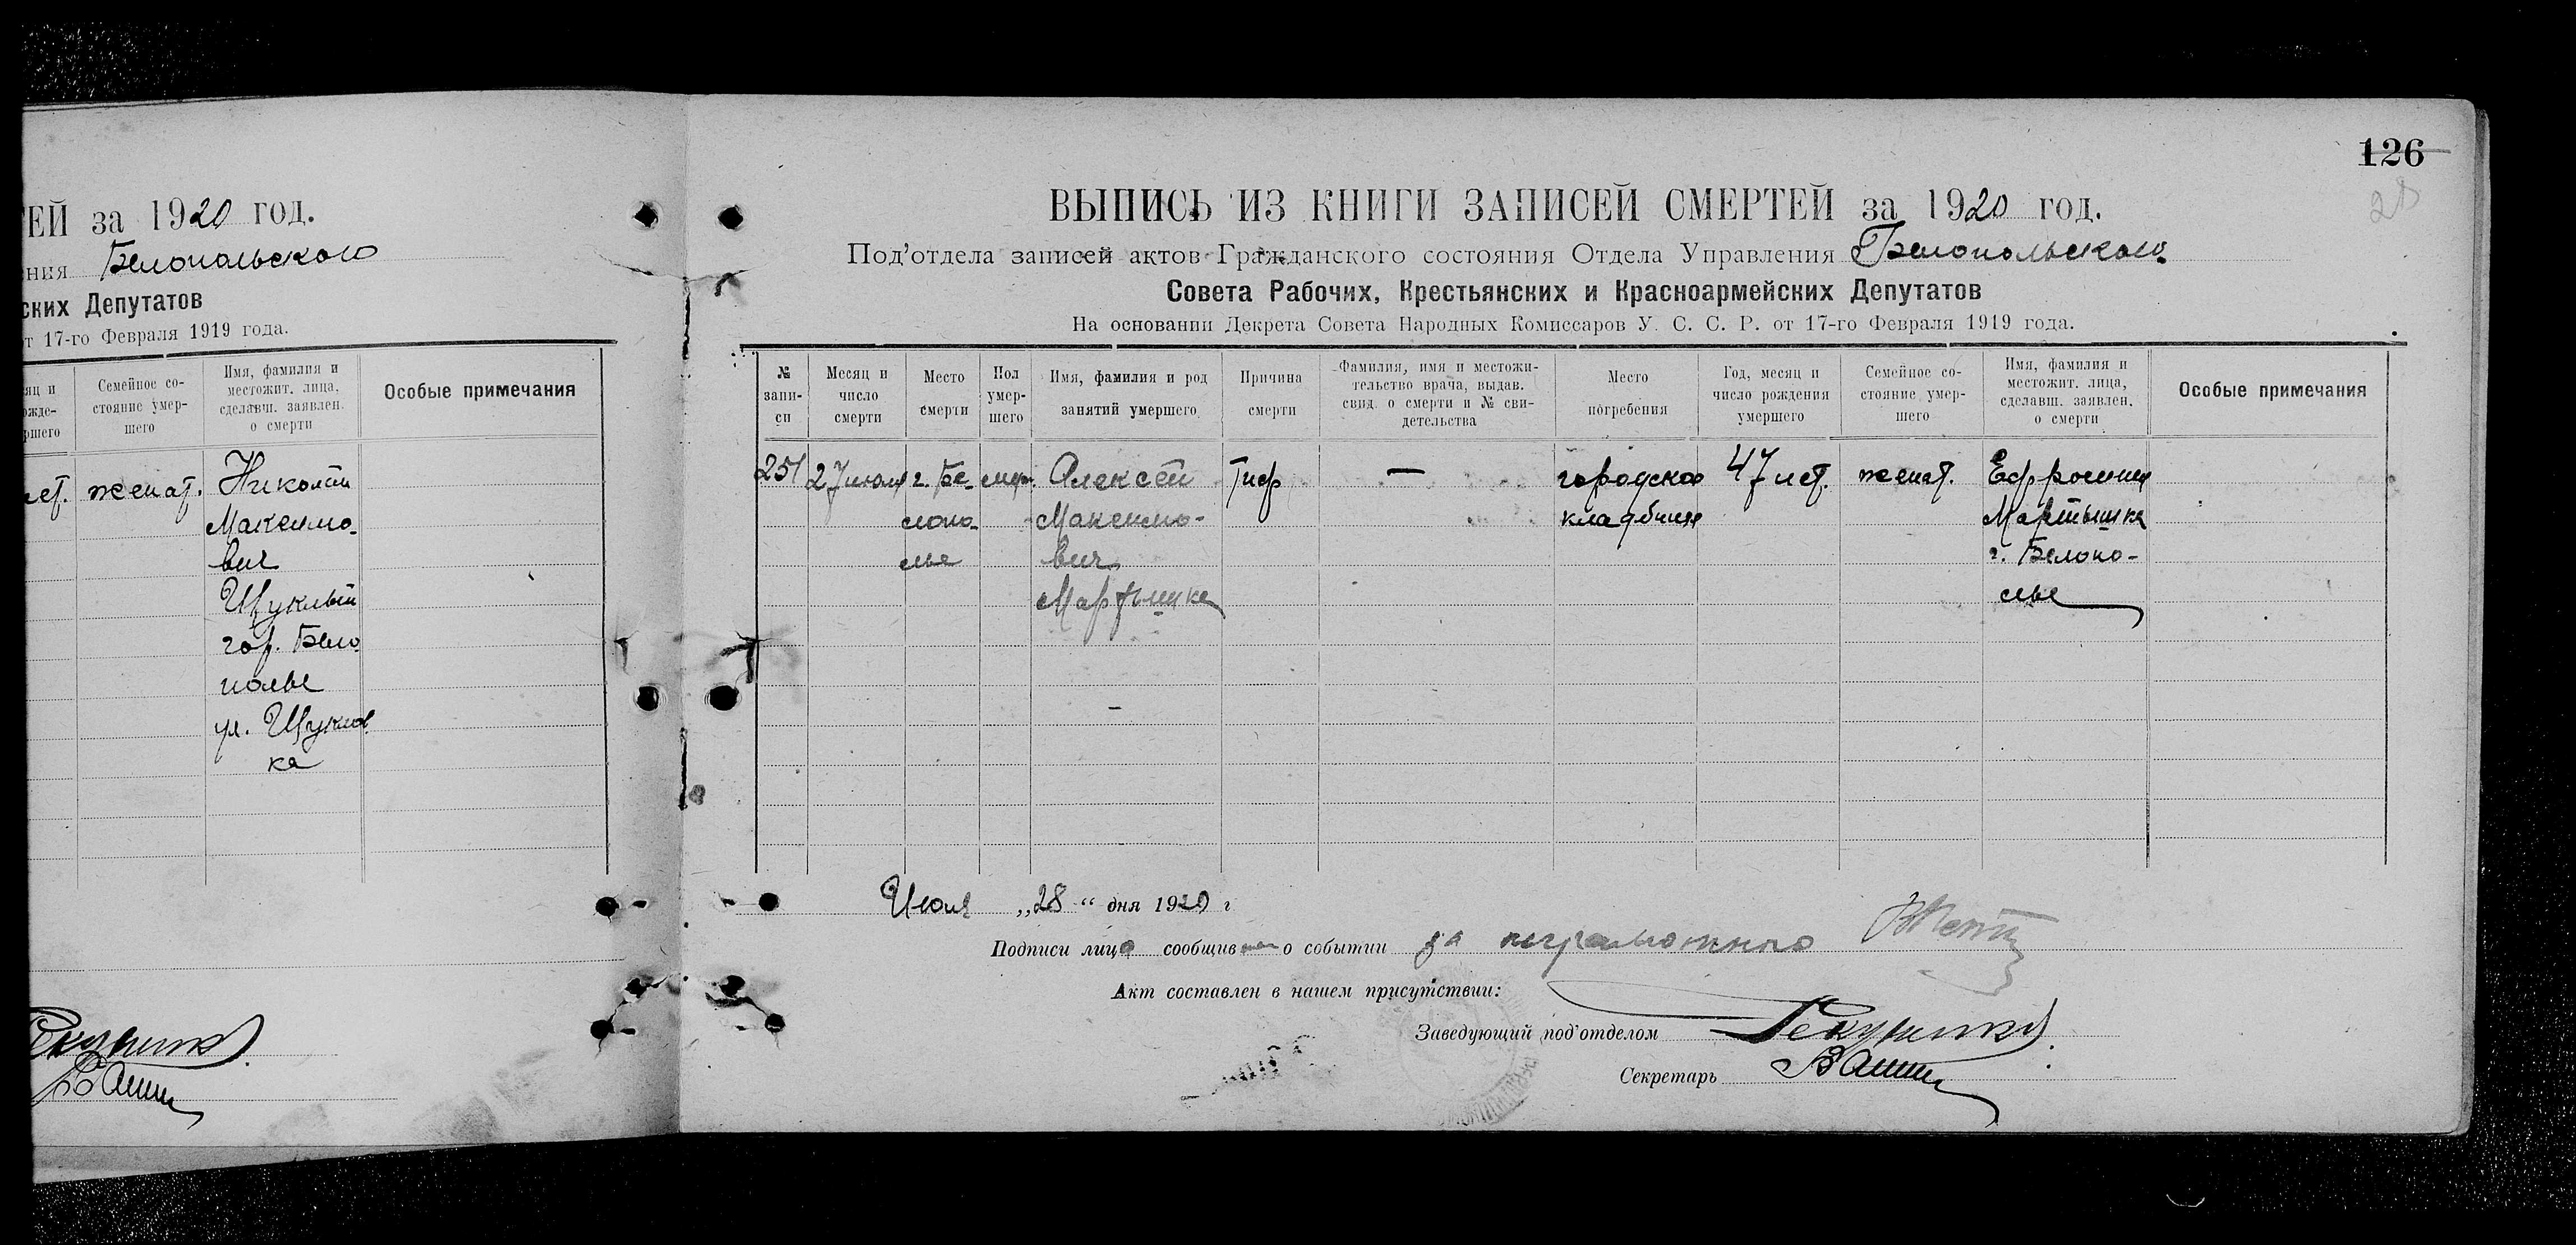 ЕЙ за 1920 год.
ния Белопольского
ских Депутатов
т 17-го Февраля 1919 года.
яц и
ожде-
ршего
Семейное со-
стояние умер-
шего
Имя, фамилия и
местожит. лица,
сделавш. заявлен.
о смерти
Особые примечания
лет. женат. Николай
Максимо-
вич
Щуклый
гор. Бело
полье
ул. Щуклов
ка
126
28
ВЫПИСЬ ИЗ КНИГИ ЗАПИСЕЙ СМЕРТЕЙ за 1920 год.
Под'отдела записей актов Гражданского состояния Отдела Управления Белопольского
Совета Рабочих, Крестьянских и Красноармейских Депутатов
На основании Декрета Совета Народных Комиссаров У. С. С. Р. от 17-го Февраля 1919 года.
№
запи-
си
Месяц и
число
смерти
Место
смерти
Пол
умер-
шего
Имя, фамилия и род
занятий умершего
Причина
смерти
Фамилия, имя и местожи-
тельство врача, выдав.
свид. о смерти и № сви-
детельства
Место
погребения
Год, месяц и
число рождения
умершего
Семейное со-
стояние умер-
шего
Имя, фамилия и
местожит. лица,
сделавш. заявлен.
о смерти
Особые примечания
251 27 июля г. Бе- муж. Алексей Тиф — городское 47 лет. женат. Ефросиния
лопо- Максимо- кладбище Мартышка
лье вич г. Белопо-
Мартышка лье
Июля „28“ дня 1920 г
Подписи лица сообщив о событии за неграмотного
Акт составлен в нашем присутствии:
Заведующий под'отделом
Секретарь